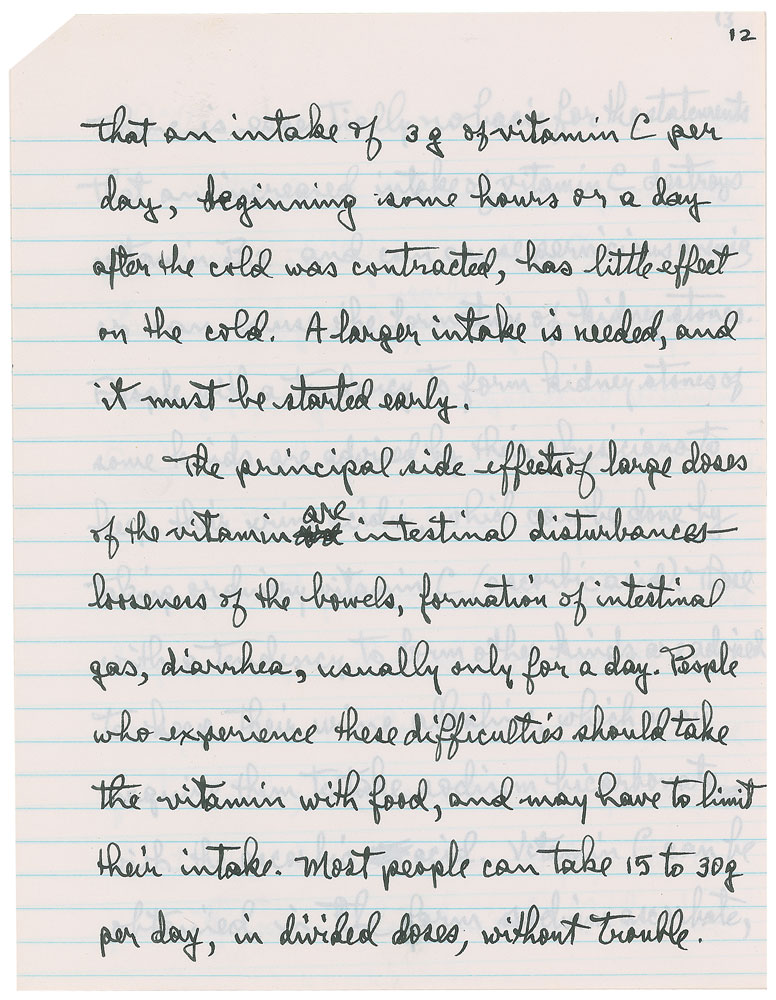 12
that an intake of 3 g of vitamin C per
day, beginning some hours or a day
after the cold was contracted, has little effect
on the cold. A larger intake is needed, and
it must be started early.
The principal side effects of large doses
of the vitamin are intestinal disturbances—
looseness of the bowels, formation of intestinal
gas, diarrhea, usually only for a day. People
who experience these difficulties should take
the vitamin with food, and may have to limit
their intake. Most people can take 15 to 30g
per day, in divided doses, without trouble.